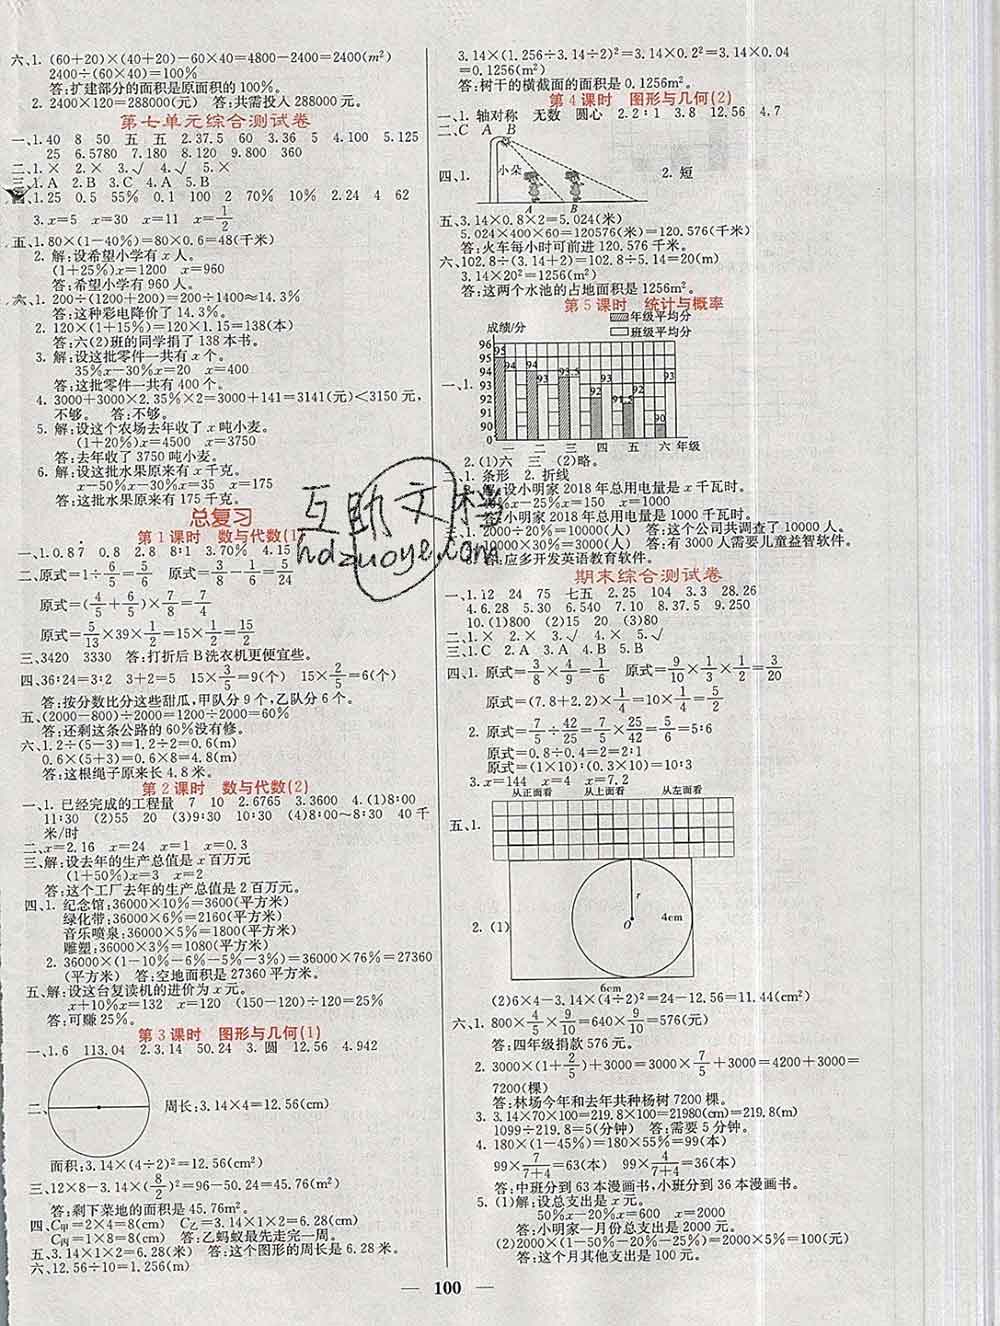 六、1. (60+20)×(40+20)-60×40=4800-2400=2400(m²)
2400÷(60×40)=100%
答:扩建部分的面积是原面积的100%。
2. 2400×120=288000(元) 答:共需投入288000元。
第七单元综合测试卷
一、1. 40 8 50 五 五 2. 37.5 60 3. 36 5 4. 100 5. 125
25 6. 5780 7. 180 8. 120 9. 800 360
二、1. × 2. × 3. √ 4. √ 5. ×
三、1. A 2. B 3. C 4. A 5. B
四、1. 25 0.5 55% 0.1 100 2 70% 10% 2. 24 4 62
3. x=5 x=30 x=11 x=1/2
五、1. 80×(1-40%)=80×0.6=48(千米)
2. 解:设希望小学有x人。
(1+25%)x=1200 x=960
答:希望小学有960人。
六、1. 200÷(1200+200)=200÷1400≈14.3%
答:这种彩电降价了14.3%。
2. 120×(1+15%)=120×1.15=138(本)
答:六(2)班的同学捐了138本书。
3. 解:设这批零件一共有x个。
35%x-30%x=20 x=400
答:这批零件一共有400个。
4. 3000+3000×2.35%×2=3000+141=3141(元)<3150元,
不够。 答:不够。
5. 解:设这个农场去年收了x吨小麦。
(1+20%)x=4500 x=3750
答:去年收了3750吨小麦。
6. 解:设这批水果原来有x千克。
x-50%x-30%x=35 x=175
答:这批水果原来有175千克。
总复习
第1课时 数与代数(1)
一、1. 0.87 0.8 2. 8 8:1 3. 70% 4. 15
二、原式=1÷6/5=5/6 原式=3/8-1/6=5/24
原式=(4/5+6/5)×7/8=7/4
原式=5/13×39×1/2=15×1/2=15/2
三、3420 3330 答:打折后B洗衣机更便宜些。
四、36:24=3:2 3+2=5 15×3/5=9(个) 15×2/5=6(个)
答:按分数比分这些甜瓜,甲队分9个,乙队分6个。
五、(2000-800)÷2000=1200÷2000=60%
答:还剩这条公路的60%没有修。
六、1.2÷(5-3)=1.2÷2=0.6(m)
0.6×(5+3)=0.6×8=4.8(m)
答:这根绳子原来长4.8米。
第2课时 数与代数(2)
一、1. 已经完成的工程量 7 10 2. 6765 3. 3600 4. (1)8:00
11:30 (2)55 20 (3)9:30 10:30 (4)8:00~8:30 40千
米/时
二、x=2.16 x=24 x=1 x=0.3
三、解:设去年的生产总值是x百万元
(1+50%)x=3 x=2
答:这个工厂去年的生产总值是2百万元。
四、1. 纪念馆:36000×10%=3600(平方米)
绿化带:36000×6%=2160(平方米)
音乐喷泉:36000×5%=1800(平方米)
雕塑:36000×3%=1080(平方米)
2. 36000×(1-10%-6%-5%-3%)=36000×76%=27360
(平方米) 答:空地面积是27360平方米。
五、解:设这台复读机的进价为x元。
x+10%x=132 x=120 (150-120)÷120=25%
答:可赚25%。
第3课时 图形与几何(1)
一、1. 6 113.04 2. 3.14 50.24 3. 圆 12.56 4. 942
二、 周长:3.14×4=12.56(cm)
面积:3.14×(4÷2)²=12.56(cm²)
三、12×8-3.14×(8/2)²=96-50.24=45.76(m²)
答:剩下菜地的面积是45.76m²。
四、C甲=2×4=8(cm) C乙=3.14×1×2=6.28(cm)
C丙=1×8=8(cm) 答:乙蚂蚁最先走完一周。
五、3.14×1×2=6.28(米) 答:这个图形的周长是6.28米。
六、12.56÷10=1.256(m)
3.14×(1.256÷3.14÷2)²=3.14×0.2²=3.14×0.04
=0.1256(m²)
答:树干的横截面的面积是0.1256m²。
第4课时 图形与几何(2)
一、1. 轴对称 无数 圆心 2. 2:1 3. 8 12.56 4. 7
二、C A B
四、1. 小朵 2. 短
A B
五、3.14×0.8×2=5.024(米)
5.024×400×60=120576(米)=120.576(千米)
答:火车每小时可前进120.576千米。
六、102.8÷(3.14+2)=102.8÷5.14=20(m)
3.14×20²=1256(m²)
答:这两个水池的占地面积是1256m²。
第5课时 统计与概率
成绩/分 年级平均分
班级平均分
一、1.
96
95
94
93
92
91
90
0
95 94 94 93 93.5 93 92 92 91.5 92 90 93
一 二 三 四 五 六 年级
2. (1)六 三 (2)略。
二、1. 条形 2. 折线
解:设小明家2018年总用电量是x千瓦时。
x-25%x=150 x=1000
答:小明家2018年总用电量是1000千瓦时。
2000÷20%=10000(人) 答:这个公司共调查了10000人。
10000×30%=3000(人) 答:有3000人需要儿童益智软件。
答:应多开发英语教育软件。
期末综合测试卷
一、1. 12 24 75 七五 2. 25 104 3. 3 28.26
4. 6.28 5. 30 6. 540 7. 10 8. 37.5 9. 250
10. (1)800 (2)15 20 (3)80
二、1. × 2. × 3. √ 4. × 5. √
三、1. C 2. A 3. A 4. B 5. B
四、1. 原式=3/8×4/9=1/6 原式=9/10×1/3×1/2=3/20
原式=(7.8+2.2)×1/4=10×1/4=5/2
2. 原式=7/5÷42/25=7/5×25/42=5/6=5:6
原式=0.8÷0.4=2=2:1
原式=(1×10):(0.3×10)=10:3
3. x=144 x=4 x=7.2
从正面看 从上面看 从左面看
五、1.
2. (1) r O 4cm
6cm
(2)6×4-3.14×(4÷2)²=24-12.56=11.44(cm²)
六、1. 800×4/5×9/10=640×9/10=576(元)
答:四年级捐款576元。
2. 3000×(1+2/5)+3000=3000×7/5+3000=4200+3000=
7200(棵)
答:林场今年和去年共种杨树7200棵。
3. 3.14×70×100=219.8×100=21980(cm)=219.8(m)
1099÷219.8=5(分钟) 答:需要5分钟。
4. 180×(1-45%)=180×55%=99(本)
99×7/7+4=63(本) 99×4/7+4=36(本)
答:中班分到63本漫画书,小班分到36本漫画书。
5. (1)解:设总支出是x元。
50%x-20%x=600 x=2000
答:小明家一月份总支出是2000元。
(2)2000×(1-50%-20%-25%)=2000×5%=100(元)
答:这个月其他支出是100元。
100
互助文档
hdzuoye.com